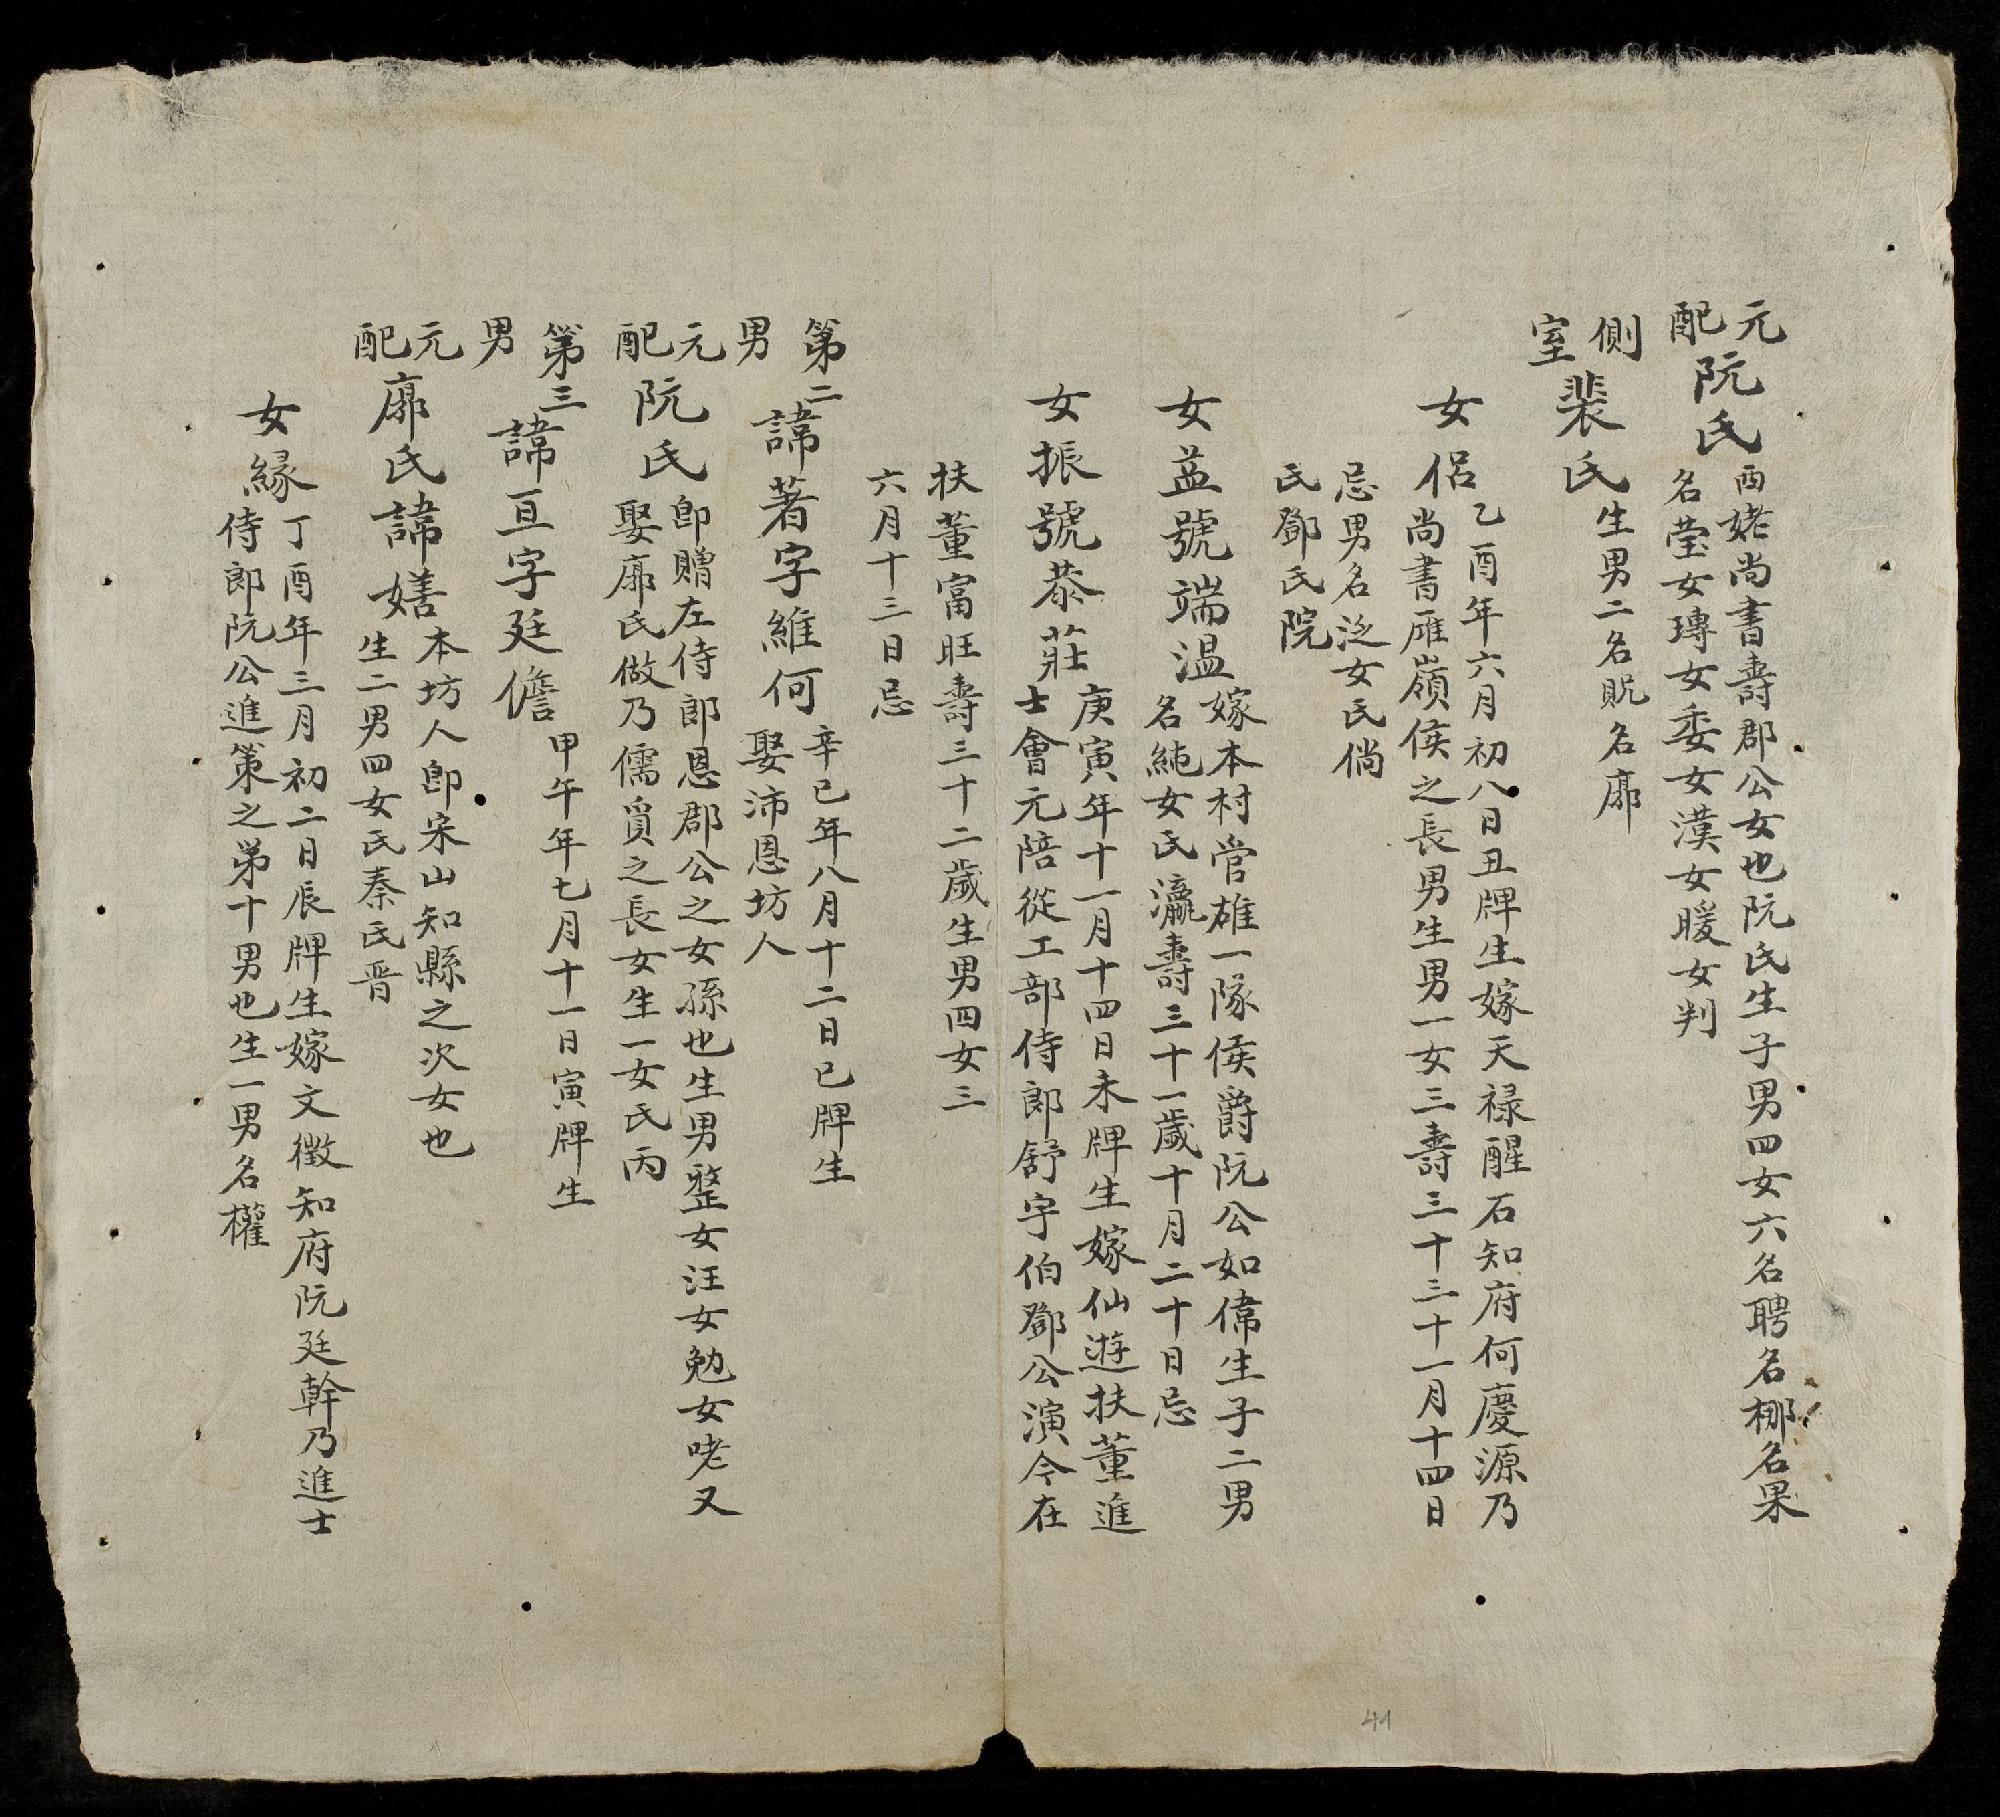 元配阮氏
西姥尚書壽郡公女也阮氏生子男四女六名聘名梛名果
名瑩女瑼女委女漢女暖女判
側室裴氏生男二名貺名廓
女侶
乙酉年六月初八日丑牌生嫁天祿醒石知府何慶源乃
尚書雁嶺侯之長男生男一女三壽三十三十一月十四日
忌男名泛女氏倘
氏鄧氏院
女益號端溫
嫁本村管雄一隊侯爵阮公如偉生子二男
名純女氏瀛壽三十一歲十月二十日忌
女振號恭莊
庚寅年十一月十四日未牌生嫁仙遊扶董進
士會元陪從工部侍郎舒宇伯鄧公演今在
扶董富旺壽三十二歲生男四女三
六月十三日忌
第二男諱著字維何
辛巳年八月十二日巳牌生
娶沛恩坊人
元配阮氏
即贈左侍郎恩郡公之女孫也生男整女汪女勉女咾又
娶廓氏做乃儒貿之長女生一女氏丙
第三男諱亘字廷儋
甲午年七月十一日寅牌生
元配廓氏諱嬉
本坊人即宋山知縣之次女也
生二男四女氏秦氏晋
女緣
丁酉年三月初二日辰牌生嫁文徵知府阮廷幹乃進士
侍郎阮公進策之弟十男也生一男名權
41